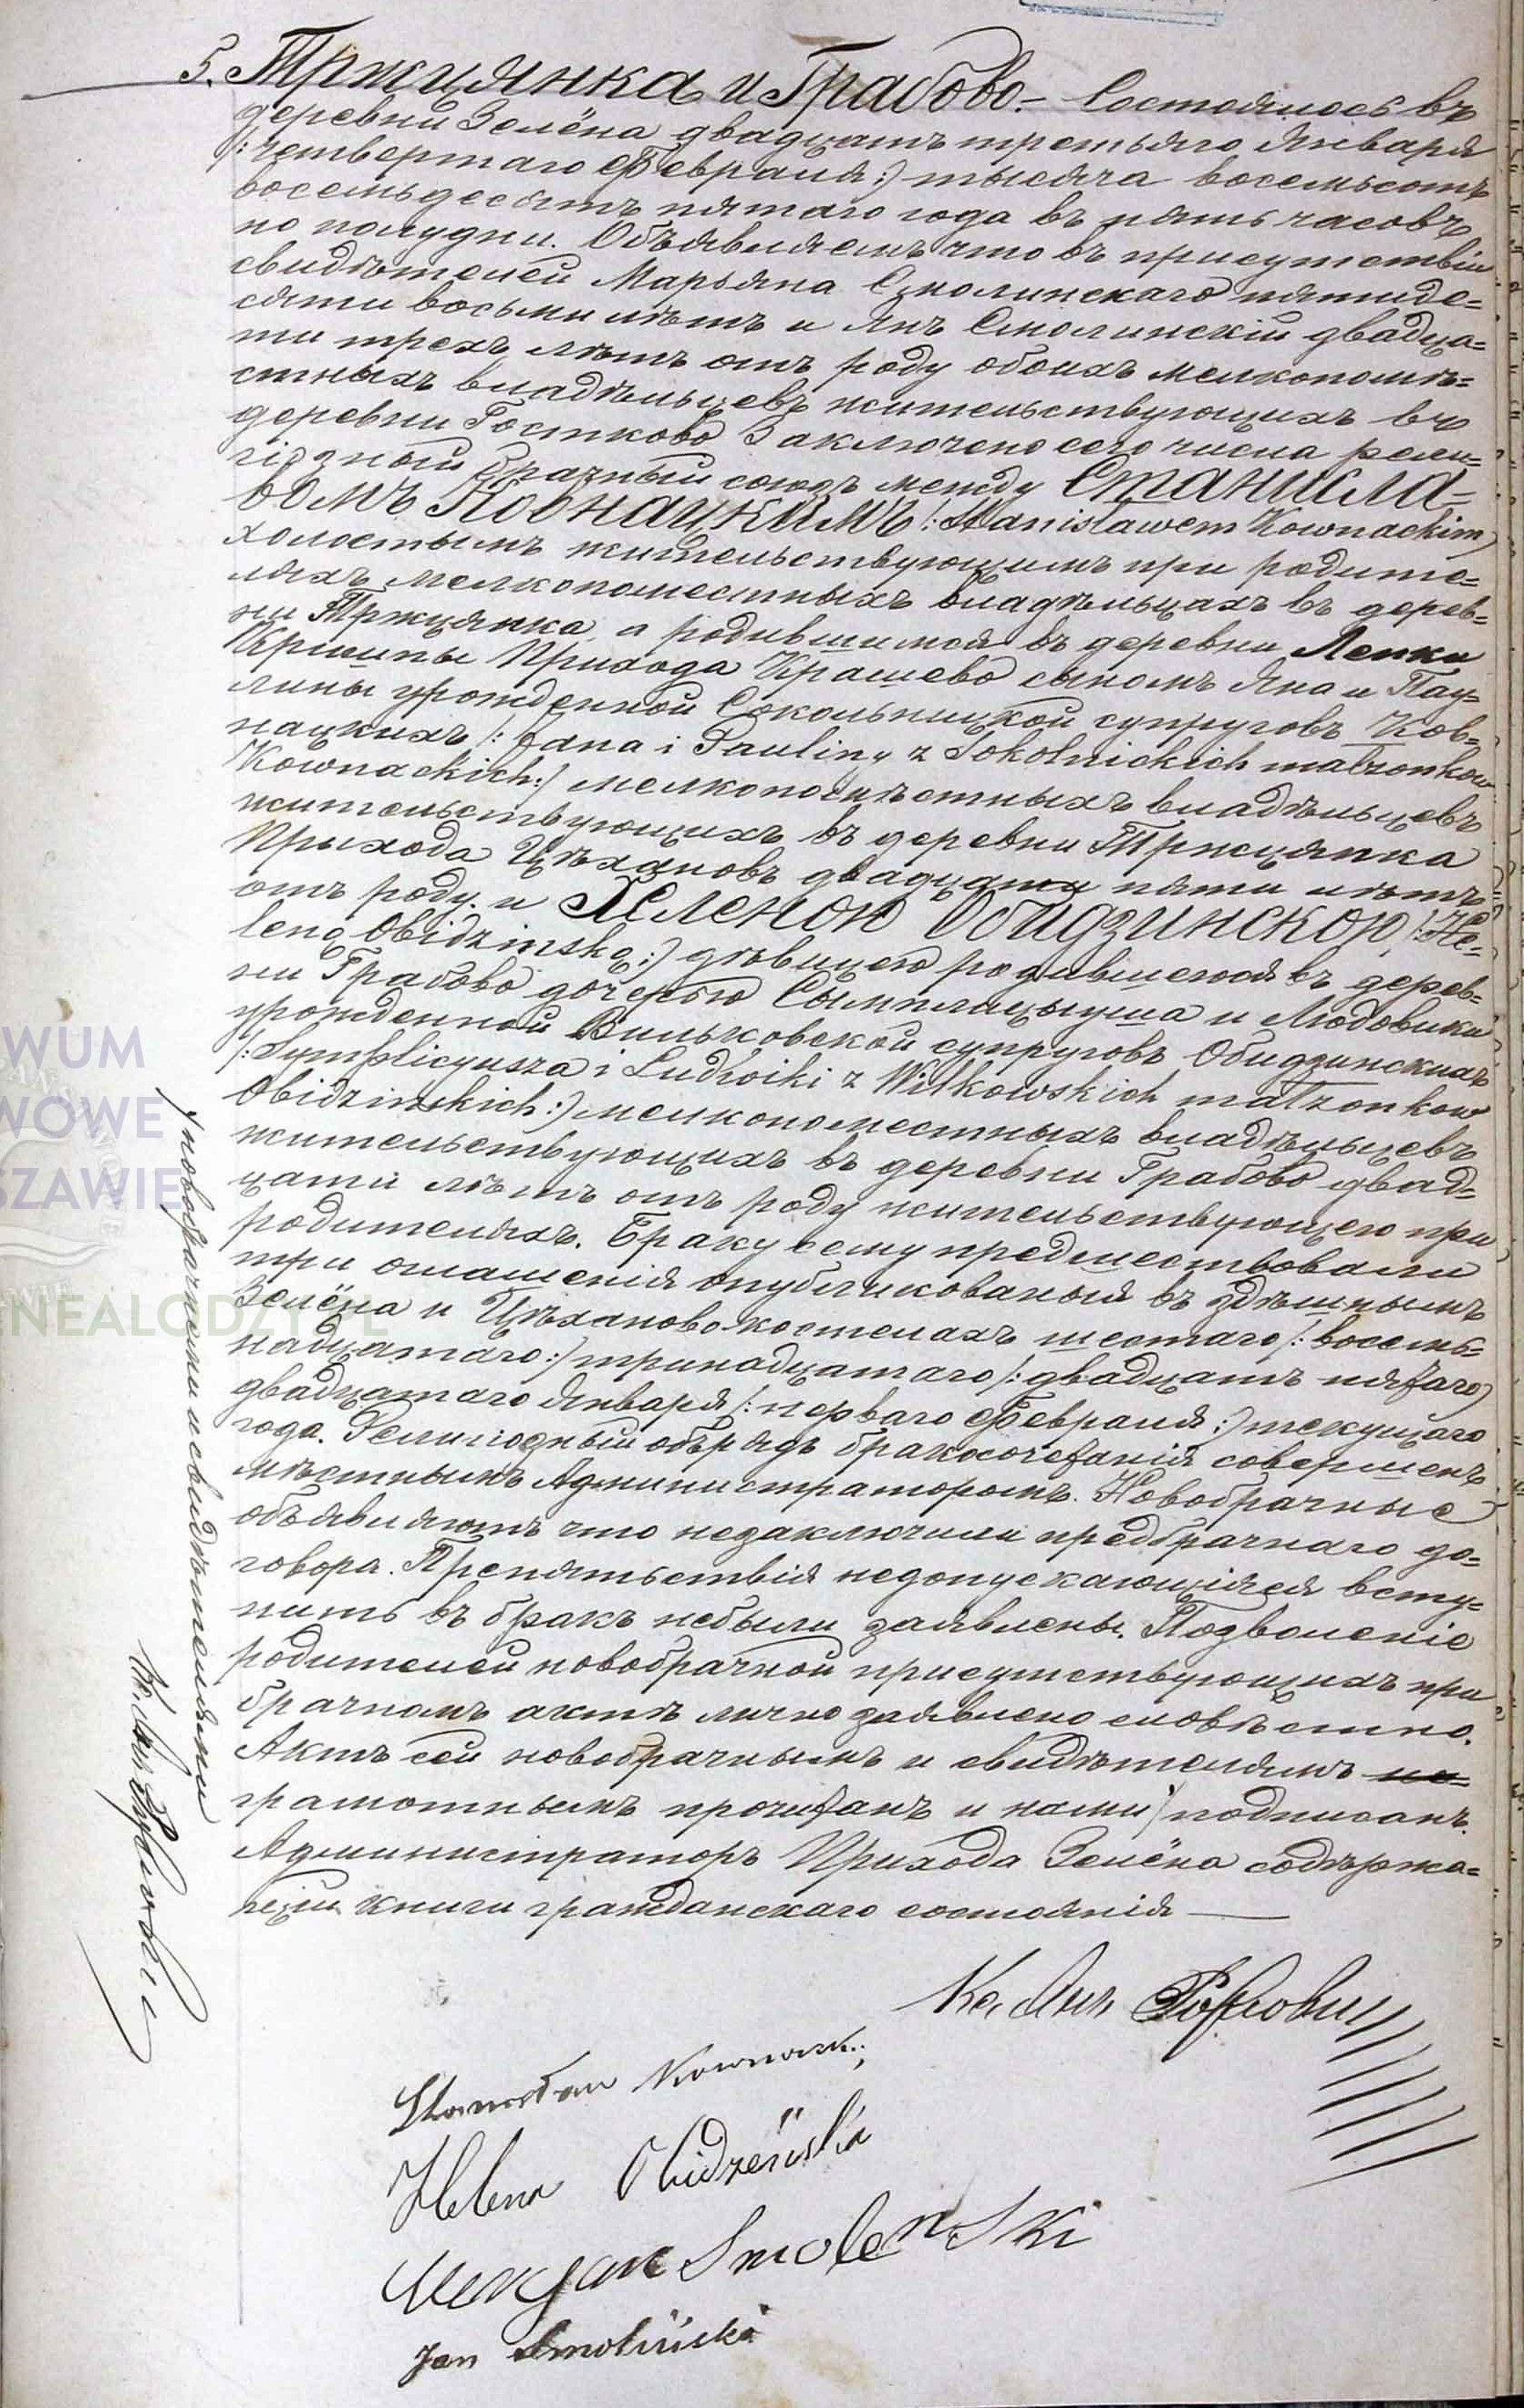 5. Тржцянка и Грабово. – Состоялось въ
деревни Зелёна двадцать третьяго Января
/: четвертаго Февраля :/ тысяча восемьсотъ
восемьдесятъ пятаго года въ пять часовъ
по полудни. Объявляемъ что въ присутствіи
свидѣтелей Марьяна Смолинскаго пятиде=
сяти восьми лѣтъ и Янъ Смолинскій двадца=
ти трехъ лѣтъ отъ роду обоихъ мелкопомѣ=
стныхъ владѣльцевъ жительствующихъ въ
деревни Гостково Заключено сего числа рели=
гіозный брачный союзъ между Станисла=
вомъ Ковнацкимъ /: Stanisławem Kownackim /
холостымъ жительствующимъ при родите=
ляхъ мелкопоместныхъ владѣльцахъ въ дерев=
ни Тржцянка, а родившимся въ деревни Лепки
Кршипы Прихода Крашево сыномъ Яна и Пау=
лины урожденной Сокольницкой супруговъ Ков=
нацкихъ /: Jana i Pauliny z Sokolnickich małżonkow
Kownackich :/ мелкопомѣстныхъ владѣльцевъ
жительствующихъ въ деревни Тржцянка
Прихода Цѣхановъ двадцати пяти лѣтъ
отъ роду. и Хеленою Обидзинскою /: He=
leną Obidzinską :/ дѣвицею родившеюся въ дерев=
ни Грабово дочерью Сымплицыуша и Людовики
урожденной Вильковской супруговъ Обидзинскихъ
/: Symplicyusza i Ludwiki z Wilkowskich małżonkow
Obidzinskich :/ мелкопоместныхъ владѣльцевъ
жительствующихъ въ деревни Грабово двад=
цати лѣтъ отъ роду жительствующею при
родителяхъ. Браку сему предшествовали
три оглашенія опубликованыя въ здѣшнымъ
Зелёна и Цѣханово костелахъ шестаго /: восемь=
надцатаго :/ тринадцатаго /: двадцать пятаго /
двадцатаго Января /: перваго Февраля :/ текущаго
года. Религіозный обърядъ бракосочетанія совершенъ
мѣстнымъ Администраторомъ. Новобрачные
объявляютъ что незаключили предбрачнаго до=
говора. Препятьствія недопускающіяся всту=
пить въ бракъ небыли заявлены. Позволеніе
родителей новобрачной присутствующихъ при
брачномъ актѣ лично заявлено словѣстно.
Актъ сей новобрачнымъ и свидѣтелямъ не=
грамотнымъ прочитанъ и нами / подписанъ.
Администраторъ Прихода Зелёна содѣржа=
щій книги гражданскаго состоянія
/ новобрачными и свидѣтелями
Кс. Янъ
Кс. Янъ
Stanisław Kownacki
Helena Obidzeńska
Meryjan Smolenski
Jan Smoliński
WUM
WOWE
SZAWIE
ENEALODZY.PL